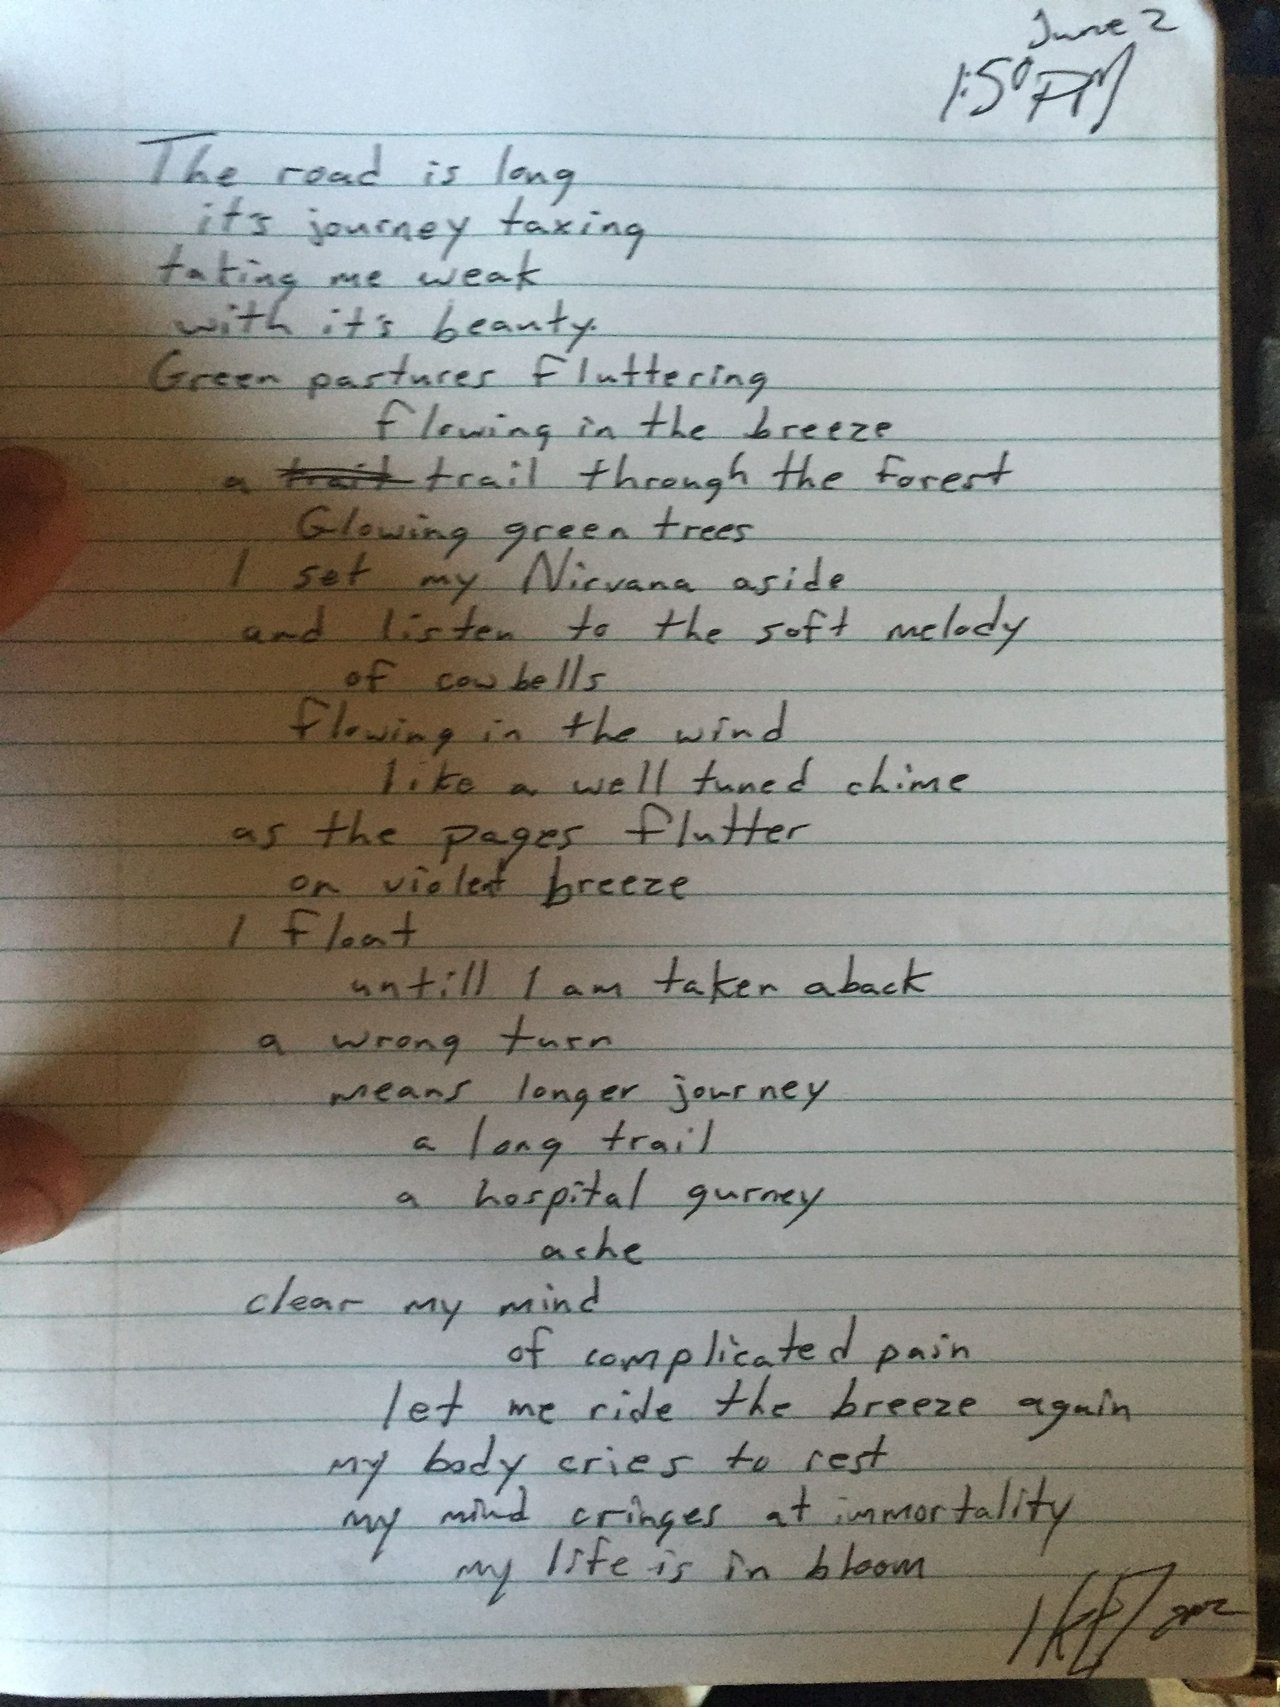 June 2
1:50 PM
The road is long
it's journey taxing
taking me weak
with it's beauty.
Green pastures fluttering
flowing in the breeze
a trail trail through the forest
Glowing green trees
I set my Nirvana aside
and listen to the soft melody
of cow bells
flowing in the wind
like a well tuned chime
as the pages flutter
on violent breeze
I float
untill I am taken aback
a wrong turn
means longer journey
a long trail
a hospital gurney
ache
clear my mind
of complicated pain
let me ride the breeze again
my body cries to rest
my mind cringes at immortality
my life is in bloom